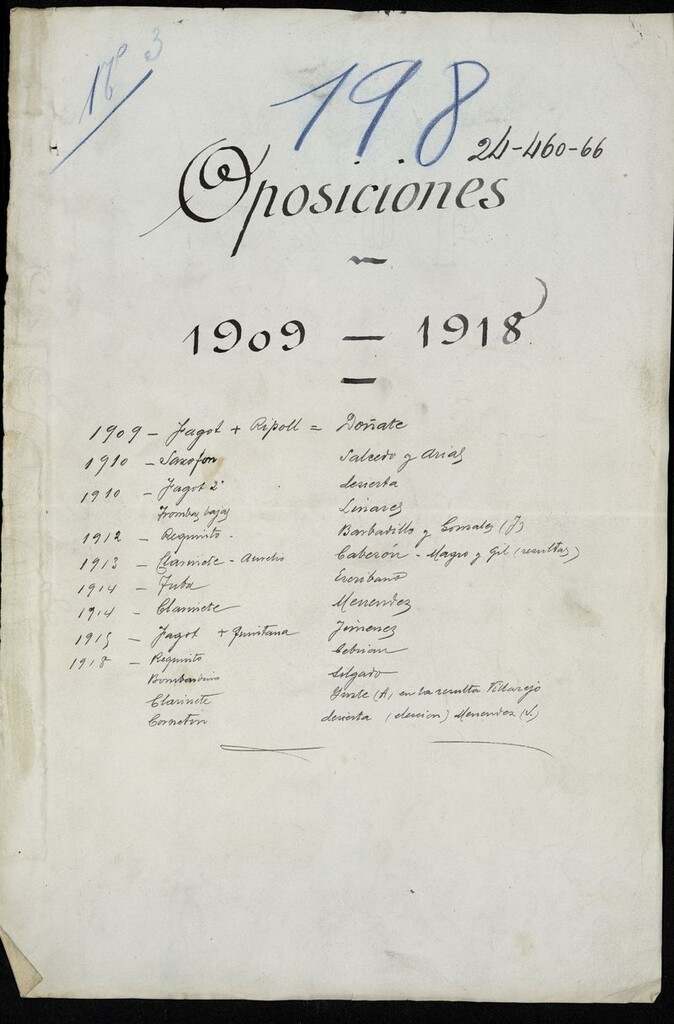 Nº 3
198
24-460-66
Oposiciones
1909 — 1918
1909 - Fagot + Ripoll = Doñate
1910 - Saxofon Salcedo y Arias
1910 - Fagot 2º desierta
Trombas bajas Linares
1912 - Requinto. Barbadillo y Gonzalez (J)
1913 - Clarinete - Aurelio Caberón - Magro y Gil (resultas)
1914 - Tuba Escribano
1914 - Clarinete Menendez
1915 - Fagot + Quintana Jimenez
1918 - Requinto Cebrian
Bombardino Silgado
Clarinete Yuste (A) en la resulta Villarejo
Cornetin desierta (eleccion) Menendez (J.)